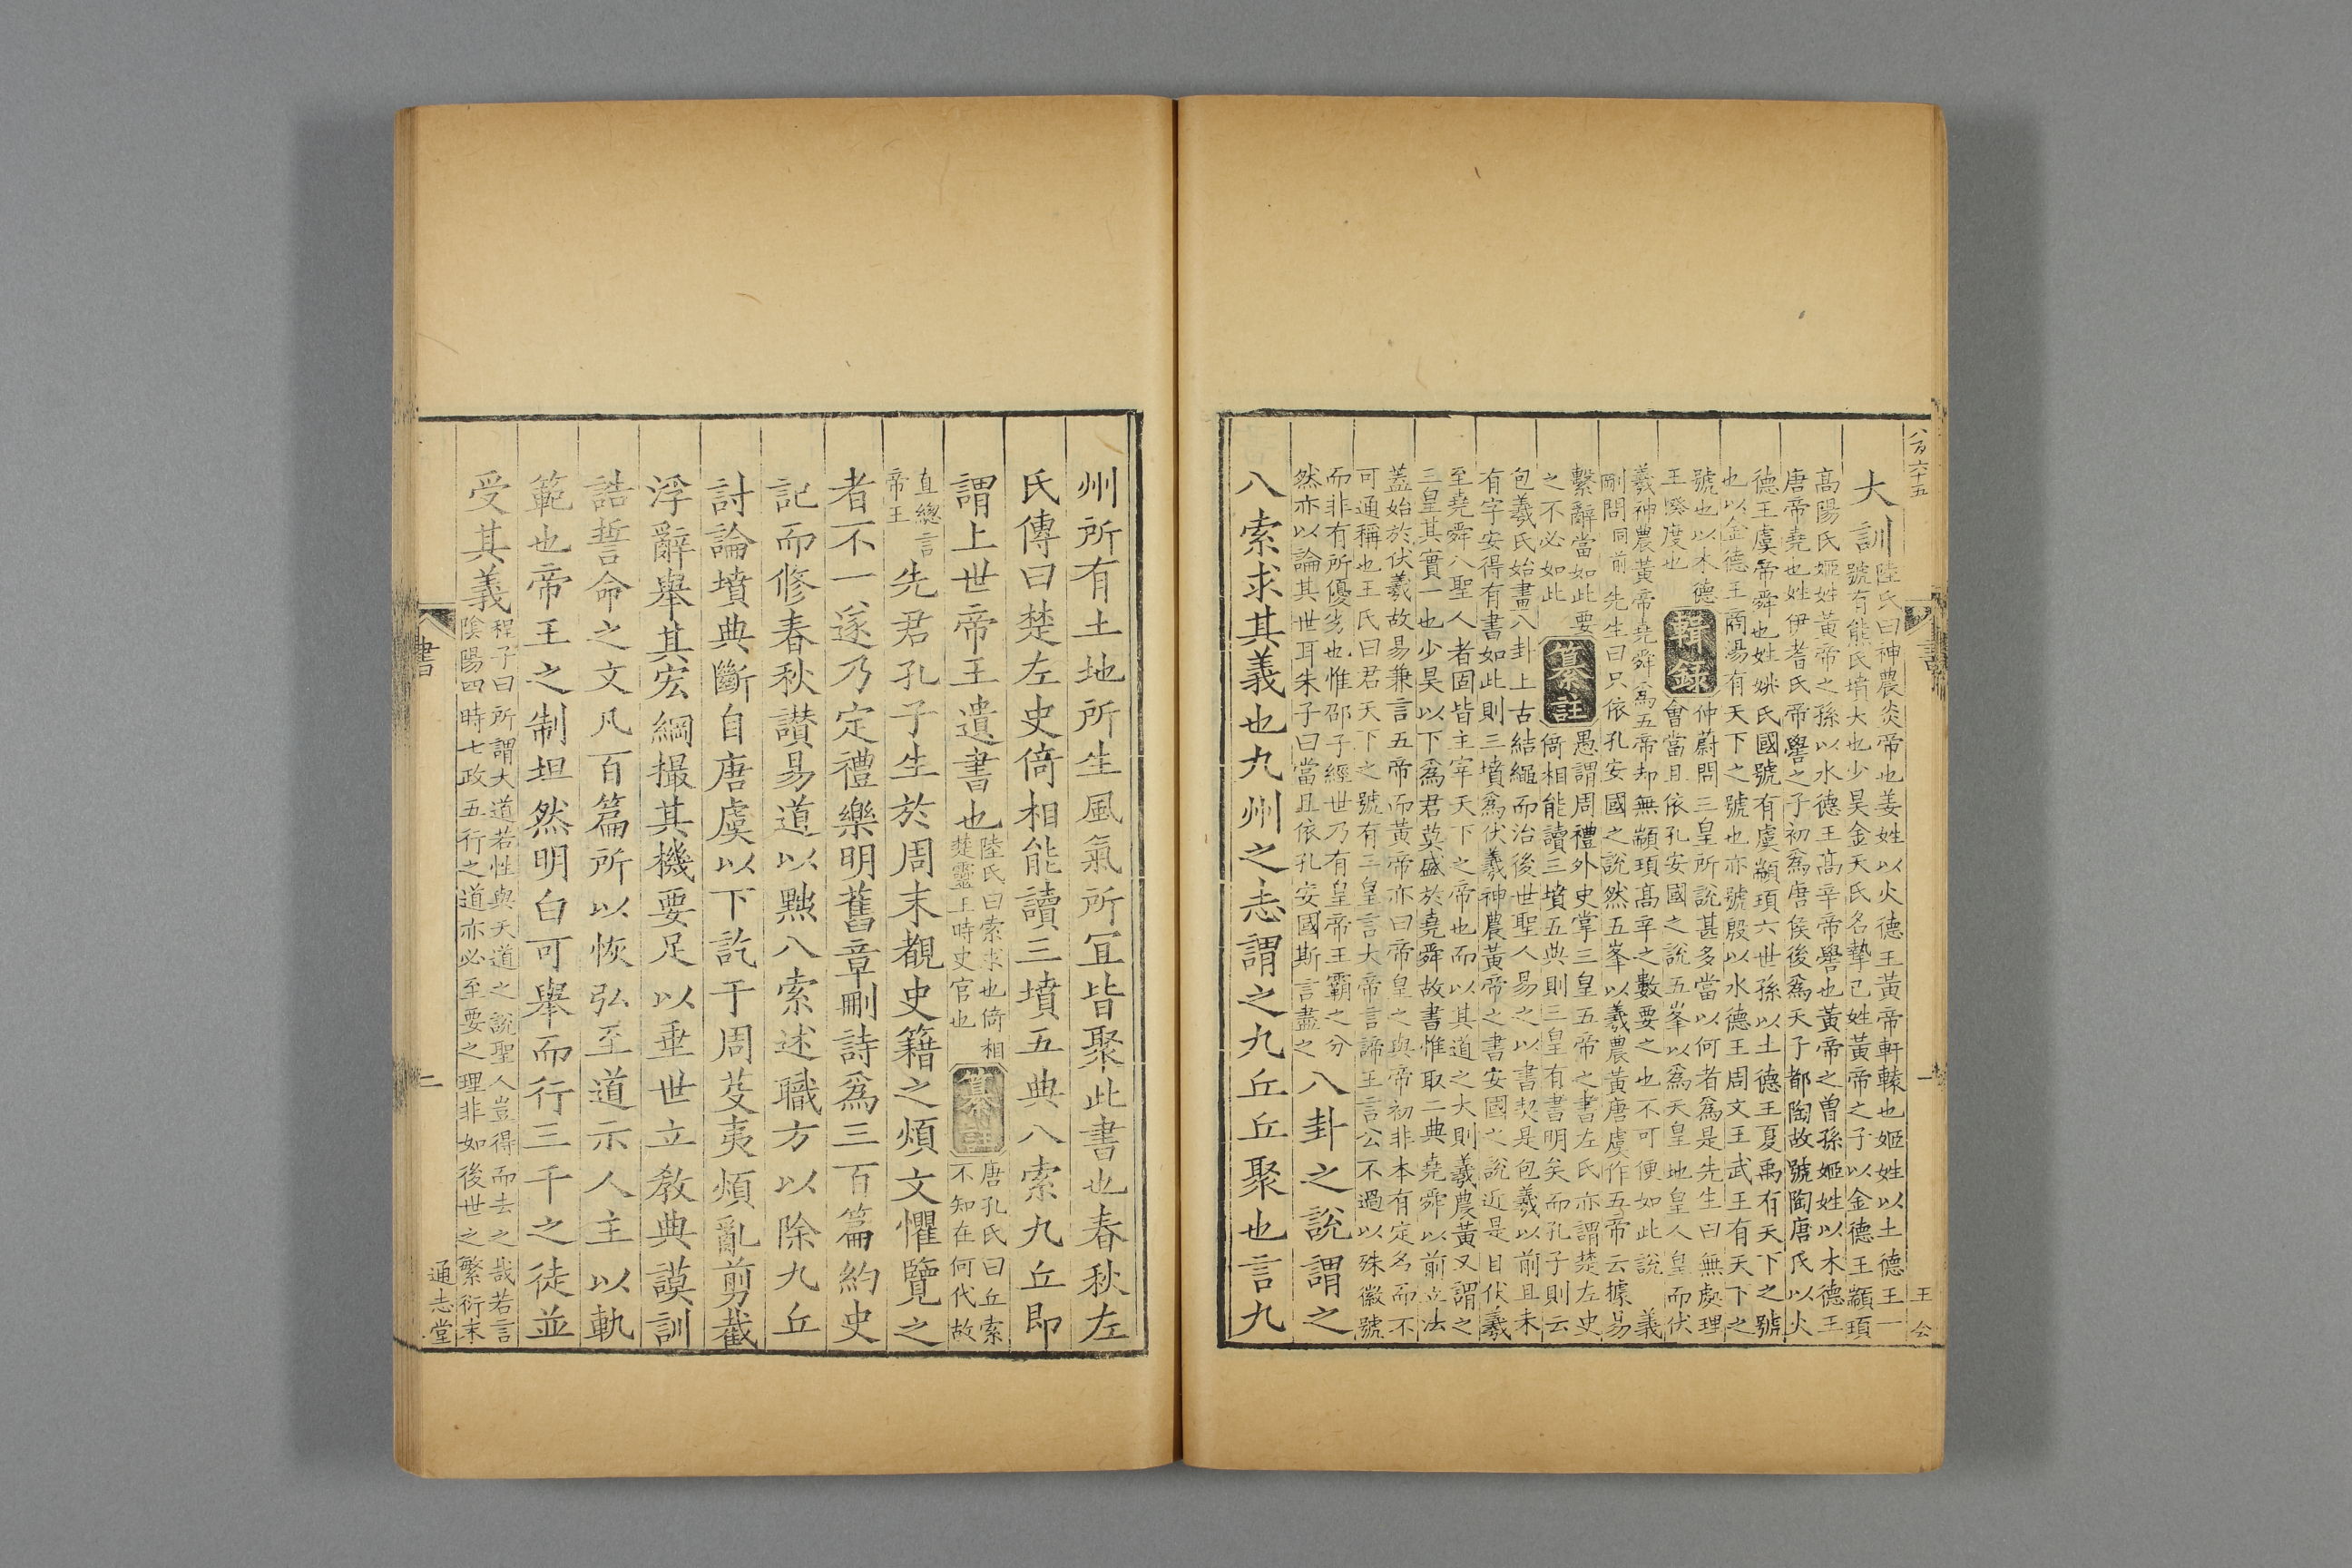 八百六十五
書
一
王
公
大訓
陸氏曰神農炎帝也姜姓以火德王黃帝軒轅也姬姓以土德王一
號有熊氏墳大也少昊金天氏名摯己姓黃帝之子以金德王顓頊
高陽氏姬姓黃帝之孫以水德王高辛帝嚳也黃帝之曾孫姬姓以木德王
唐帝堯也姓伊耆氏帝嚳之子初爲唐侯後爲天子都陶故號陶唐氏以火
德王虞帝舜也姓姚氏國號有虞顓頊六世孫以土德王夏禹有天下之號
也以金德王商湯有天下之號也亦號殷以水德王周文王武王有天下之
號也以木德
王揆度也
輯錄
仲蔚問三皇所說甚多當以何者爲是先生曰無處理
會當且依孔安國之說五峯以爲天皇地皇人皇而伏
羲神農黃帝堯舜爲五帝却無顓頊高辛之數要之也不可便如此說 義
剛問同前 先生曰只依孔安國之說然五峯以羲農黃唐虞作五帝云據易
繫辭當如此要
之不必如此
纂註
愚謂周禮外史掌三皇五帝之書左氏亦謂楚左史
倚相能讀三墳五典則三皇有書明矣而孔子則云
包羲氏始畫八卦上古結繩而治後世聖人易之以書契是包羲以前且未
有字安得有書如此則三墳爲伏羲神農黃帝之書安國之說近是自伏羲
至堯舜八聖人者固皆主宰天下之帝也而以其道之大則羲農黃又謂之
三皇其實一也少昊以下爲君莫盛於堯舜故書惟取二典堯舜以前立法
蓋始於伏羲故易兼言五帝而黃帝亦曰帝皇之與帝初非本有定名而不
可通稱也王氏曰君天下之號有三皇言大帝言諦王言公不過以殊徽號
而非有所優劣也惟邵子經世乃有皇帝王霸之分
然亦以論其世耳朱子曰當且依孔安國斯言盡之
八卦之說謂之
八索求其義也九州之志謂之九丘丘聚也言九
州所有土地所生風氣所宜皆聚此書也春秋左
氏傳曰楚左史倚相能讀三墳五典八索九丘即
謂上世帝王遺書也
陸氏曰索求也倚相
楚靈王時史官也
纂註
唐孔氏曰丘索
不知在何代故
直總言
帝王
先君孔子生於周末覩史籍之煩文懼覽之
者不一遂乃定禮樂明舊章刪詩爲三百篇約史
記而修春秋讃易道以黜八索述職方以除九丘
討論墳典斷自唐虞以下訖于周芟夷煩亂剪截
浮辭舉其宏綱撮其機要足以垂世立教典謨訓
誥誓命之文凡百篇所以恢弘至道示人主以軌
範也帝王之制坦然明白可舉而行三千之徒並
受其義
程子曰所謂大道若性與天道之說聖人豈得而去之哉若言
陰陽四時七政五行之道亦必至要之理非如後世之繁衍末
書
二
通志堂